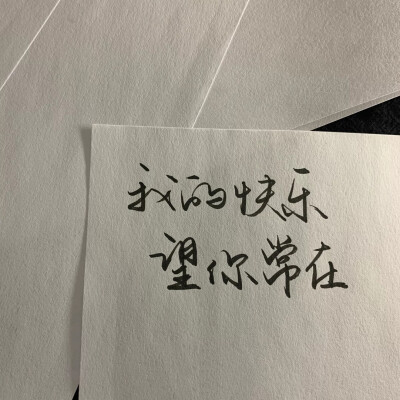 我的快乐
望你常在